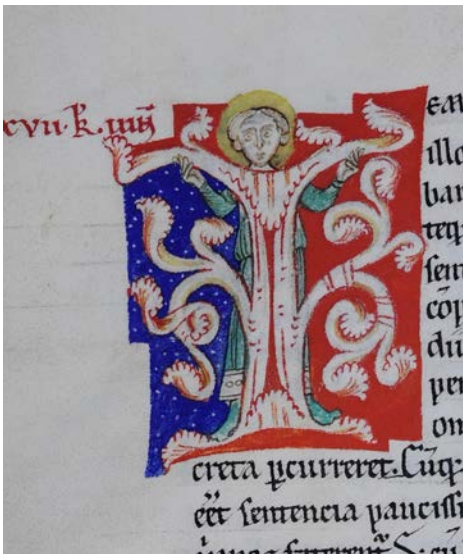 xvii·k̄·iun̄
illo
ban
teqꝫ
sen
cōp
du
per
om
creta ꝑcurreret. Cūqꝫ
eēt sentencia paucissi